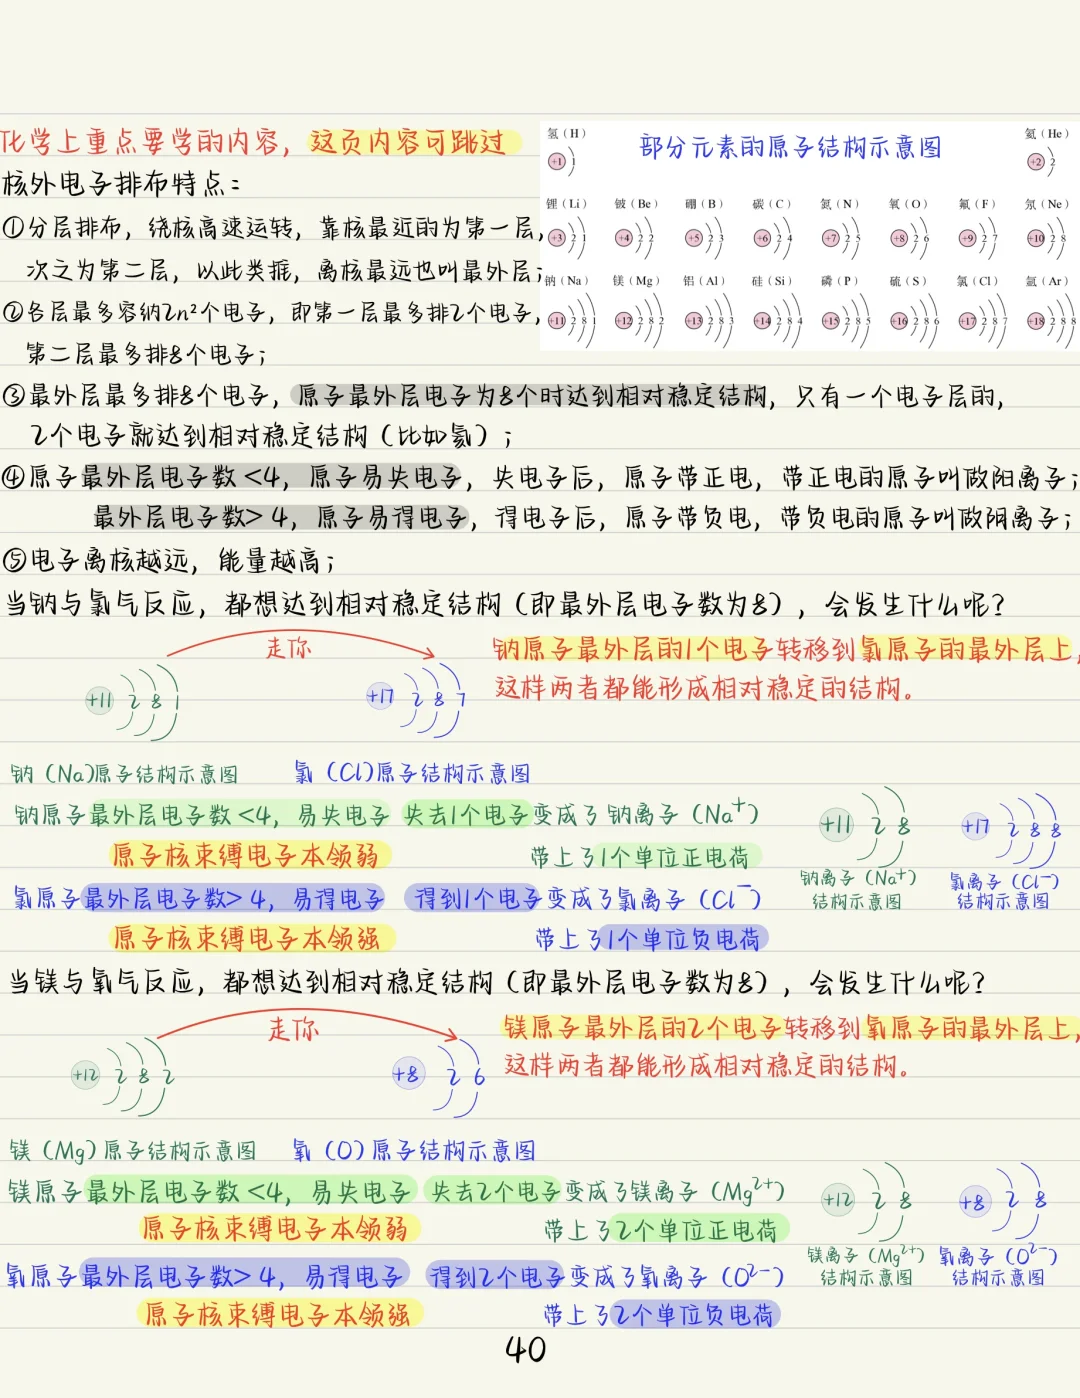 化学上重点要学的内容，这页内容可跳过
核外电子排布特点：
①分层排布，绕核高速运转，靠核最近的为第一层，
次之为第二层，以此类推，离核最远也叫最外层；
②各层最多容纳2n²个电子，即第一层最多排2个电子，
第二层最多排8个电子；
部分元素的原子结构示意图
氢（H） 氦（He）
+1 1 +2 2
锂（Li） 铍（Be） 硼（B） 碳（C） 氮（N） 氧（O） 氟（F） 氖（Ne）
+3 2 1 +4 2 2 +5 2 3 +6 2 4 +7 2 5 +8 2 6 +9 2 7 +10 2 8
钠（Na） 镁（Mg） 铝（Al） 硅（Si） 磷（P） 硫（S） 氯（Cl） 氩（Ar）
+11 2 8 1 +12 2 8 2 +13 2 8 3 +14 2 8 4 +15 2 8 5 +16 2 8 6 +17 2 8 7 +18 2 8 8
③最外层最多排8个电子，原子最外层电子为8个时达到相对稳定结构，只有一个电子层的，
2个电子就达到相对稳定结构（比如氦）；
④原子最外层电子数<4，原子易失电子，失电子后，原子带正电，带正电的原子叫做阳离子；
最外层电子数>4，原子易得电子，得电子后，原子带负电，带负电的原子叫做阴离子；
⑤电子离核越远，能量越高；
当钠与氯气反应，都想达到相对稳定结构（即最外层电子数为8），会发生什么呢？
走你
钠原子最外层的1个电子转移到氯原子的最外层上，
这样两者都能形成相对稳定的结构。
+11 2 8 1 +17 2 8 7
钠（Na）原子结构示意图 氯（Cl）原子结构示意图
钠原子最外层电子数<4，易失电子 失去1个电子变成了钠离子（Na⁺）
原子核束缚电子本领弱 带上了1个单位正电荷
氯原子最外层电子数>4，易得电子 得到1个电子变成了氯离子（Cl⁻）
原子核束缚电子本领强 带上了1个单位负电荷
+11 2 8 +17 2 8 8
钠离子（Na⁺） 氯离子（Cl⁻）
结构示意图 结构示意图
当镁与氧气反应，都想达到相对稳定结构（即最外层电子数为8），会发生什么呢？
走你
镁原子最外层的2个电子转移到氧原子的最外层上，
这样两者都能形成相对稳定的结构。
+12 2 8 2 +8 2 6
镁（Mg）原子结构示意图 氧（O）原子结构示意图
镁原子最外层电子数<4，易失电子 失去2个电子变成了镁离子（Mg²⁺）
原子核束缚电子本领弱 带上了2个单位正电荷
氧原子最外层电子数>4，易得电子 得到2个电子变成了氧离子（O²⁻）
原子核束缚电子本领强 带上了2个单位负电荷
+12 2 8 +8 2 8
镁离子（Mg²⁺） 氧离子（O²⁻）
结构示意图 结构示意图
40